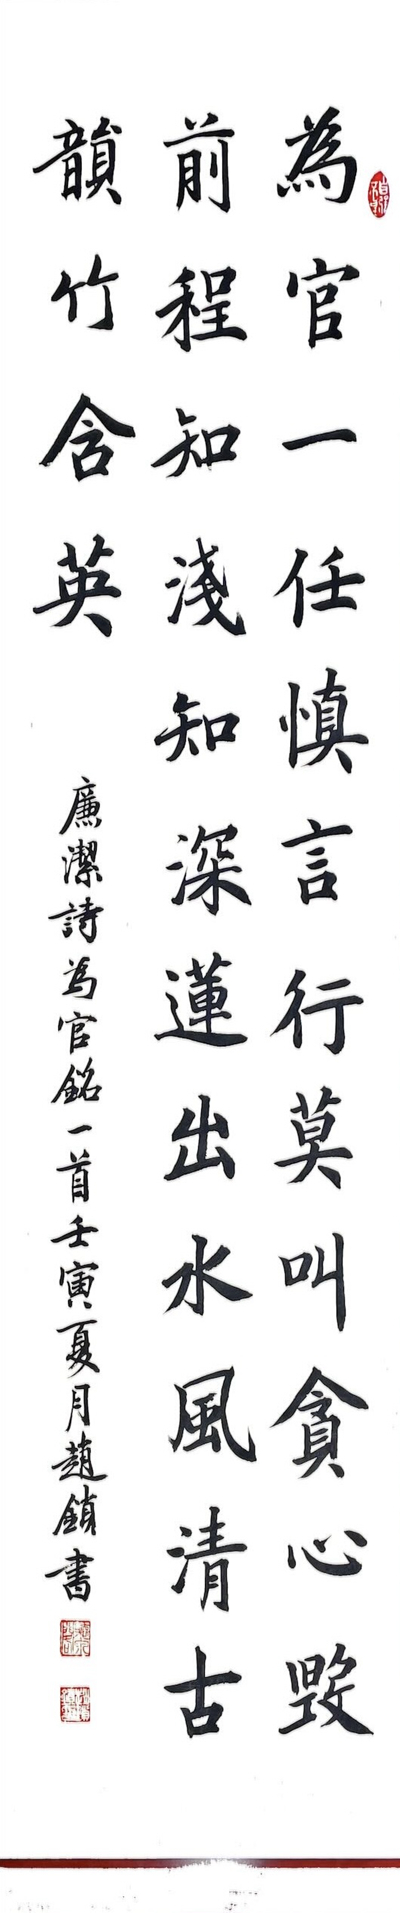 為官一任慎言行莫叫貪心毀
前程知淺知深蓮出水風清古
韻竹含英
廉潔詩為官銘一首壬寅夏月趙鎖書